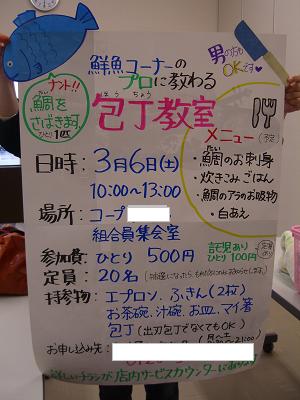 鮮魚コーナーの
プロに教わる
男の方も
OKです♥
ナント!!
鯛を
さばきます。
ひとり1匹
ほうちょう
包丁教室
メニュー(予定)
・鯛のお刺身
・炊きこみごはん
・鯛のアラのお吸物
・白あえ
日時：3月6日(土)
10:00〜13:00
場所：コープ
組合員集会室
参加費：ひとり500円
託児あり
ひとり100円
定員：20名
持参物：エプロン、ふきん(2枚)
お茶碗、汁碗、お皿、マイ箸
包丁(出刃包丁でなくてもOK)
お申し込み先：
(月〜土
〜21:00)
詳しいチラシが店内サービスカウンターにあります